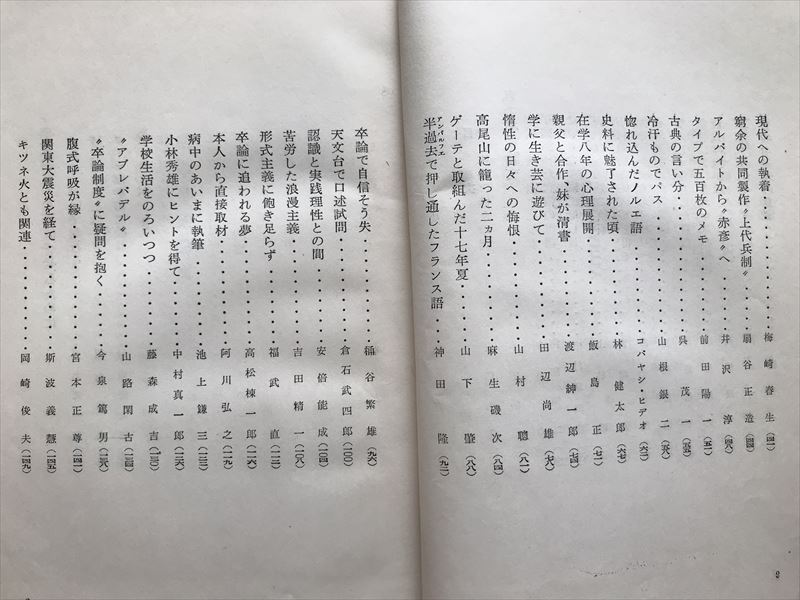 現代への執着・・・・・・・・・・・・梅崎春生（四一）
窮余の共同製作〝上代兵制〟・・・扇谷正造（四四）
アルバイトから〝赤彦〟へ・・・・・井沢淳（四八）
タイプで五百枚のメモ・・・・・・・前田陽一（五一）
古典の言い分・・・・・・・・・・・・呉茂一（五五）
冷汗ものでパス・・・・・・・・・・・山根銀二（五八）
惚れ込んだノルエ語・・・・・・・・コバヤシ・ヒデオ（六三）
史料に魅了された頃・・・・・・・・林健太郎（六七）
在学八年の心理展開・・・・・・・・飯島正（七一）
親父と合作、妹が清書・・・・・・・渡辺紳一郎（七四）
学に生き芸に遊びて・・・・・・・・田辺尚雄（七六）
惰性の日々への悔恨・・・・・・・・山村聰（八一）
高尾山に籠った二ヵ月・・・・・・・麻生磯次（八四）
ゲーテと取組んだ十七年夏・・・・山下肇（八八）
半過去で押し通したフランス語・・・神田隆（九二）
アンパルフェ
卒論で自信そう失・・・・・・・・・・桶谷繁雄（九六）
天文台で口述試問・・・・・・・・・・倉石武四郎（一〇〇）
認識と実践理性との間・・・・・・・安倍能成（一〇四）
苦労した浪漫主義・・・・・・・・・・吉田精一（一〇八）
形式主義に飽き足らず・・・・・・・福武直（一一二）
卒論に追われる夢・・・・・・・・・・高松棟一郎（一一六）
本人から直接取材・・・・・・・・・・阿川弘之（一一九）
病中のあいまに執筆・・・・・・・・池上鎌三（一二三）
小林秀雄にヒントを得て・・・・・・中村真一郎（一二六）
学校生活をのろいつつ・・・・・・・藤森成吉（一三〇）
〝アブレバデル〟・・・・・・・・・・・山路閑古（一三四）
〝卒論制度〟に疑問を抱く・・・・・今泉篤男（一三八）
腹式呼吸が縁・・・・・・・・・・・・宮本正尊（一四一）
関東大震災を経て・・・・・・・・・・斯波義慧（一四五）
キツネ火とも関連・・・・・・・・・・岡崎俊夫（一四九）
2